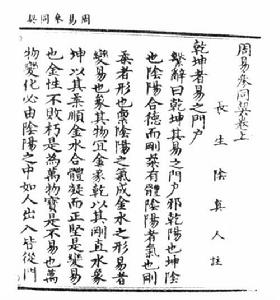 周易參同契
周易參同契卷上
長生陰真人註
乾坤者易之門戶
繫辭曰乾坤其易之門戶邪乾陽也坤陰
也陰陽合德而剛柔有體陰陽者氣也剛
柔者形也稟陰陽之氣成金水之形易者
變易也象其物宜金象乾以其剛直水象
坤以其柔順金水合體凝而正堅是變易
也金性不敗朽是為萬物寶是不易也萬
物變化必由陰陽之中如人出入皆從門